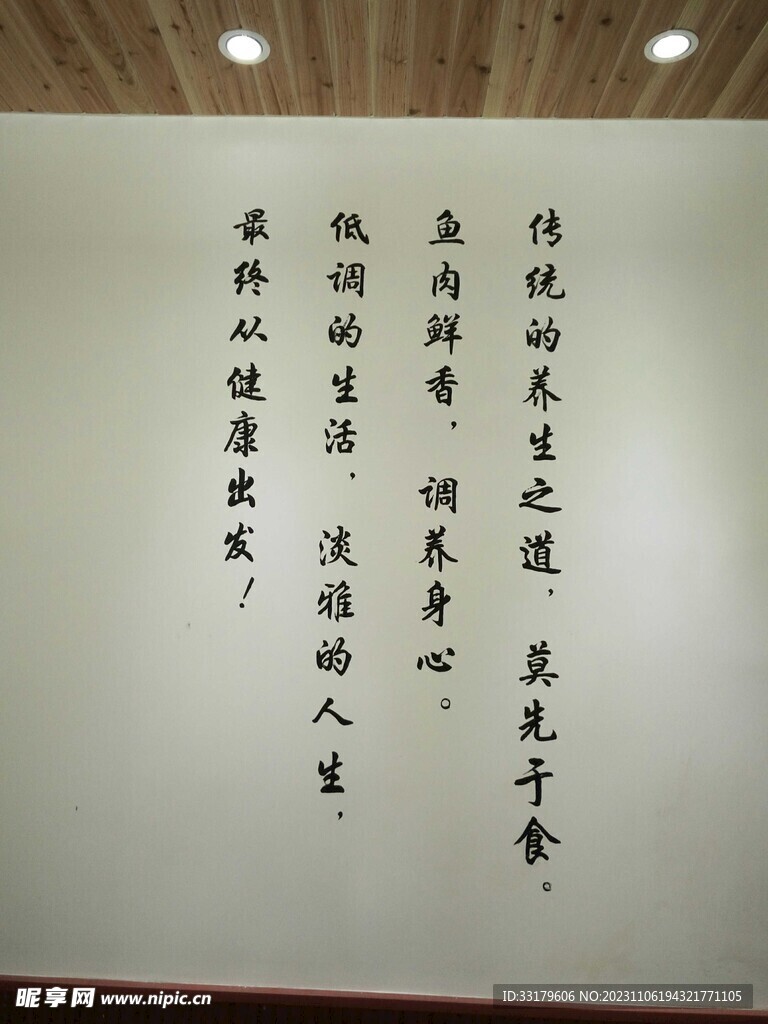 传统的养生之道，莫先于食。
鱼肉鲜香，调养身心。
低调的生活，淡雅的人生，
最终从健康出发！
昵享网 www.nipic.cn
ID:33179606 NO:20231106194321771105